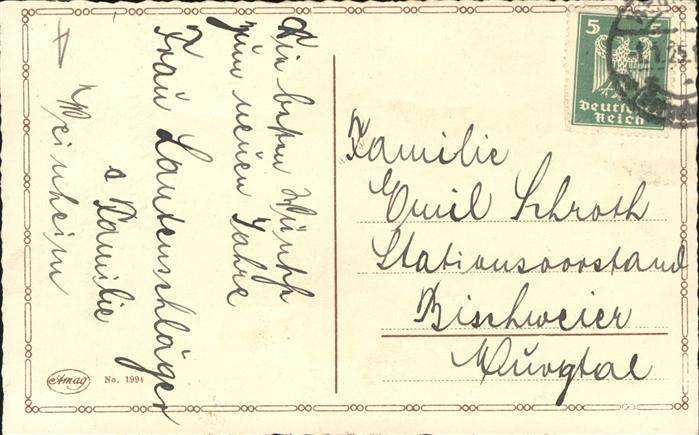 Die besten Wünsche
zum neuen Jahre
Frau Lautenschläger
& Familie
Weinheim
Familie
Emil Schroth
Stationsvorstand
Bischweier
Murgtal
5
Deutsches
Reich
Amag
No. 1994